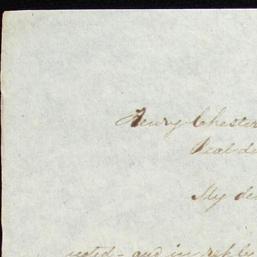 Henry Chester
Peabo
My de
noted - and in reply